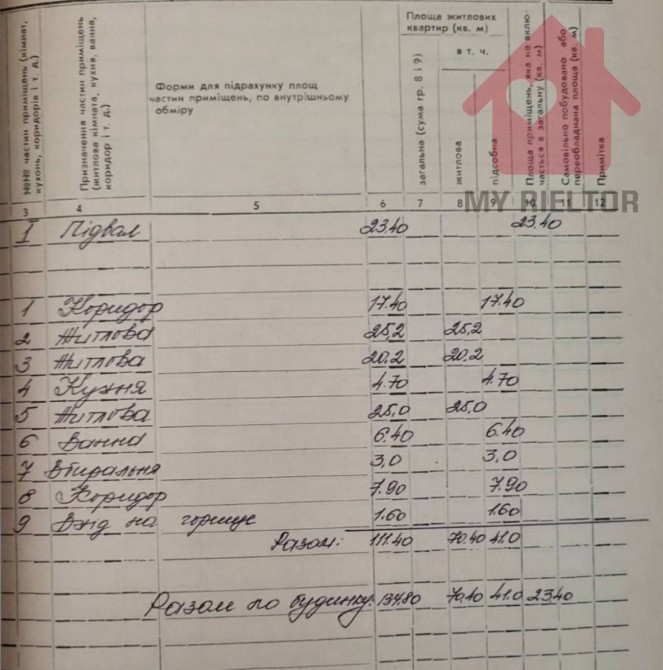 №№ частин приміщень (кімнат, кухонь, коридорів і т. д.)
Призначення частин приміщень (житлова кімната, кухня, ванна, коридор і т. д.)
Форми для підрахунку площ частин приміщень, по внутрішньому обміру
Площа житлових квартир (кв. м)
загальна (сума гр. 8 і 9)
в т. ч.
житлова
підсобна
Площа приміщень, яка не включається в загальну (кв. м)
Самовільно побудовано або переобладнана площа (кв. м)
Примітка
MY RIELTOR
3 4 5 6 7 8 9 10 11 12
I Підвал 23.40 23.40
1 Коридор 17.40 17.40
2 Житлова 25,2 25,2
3 Житлова 20.2 20.2
4 Кухня 4.70 4.70
5 Житлова 25,0 25,0
6 Ванна 6.40 6.40
7 Вбиральня 3,0 3,0
8 Коридор 7.90 7.90
9 Вхід на горище 1.60 1.60
Разом: 111.40 70.40 41.0
Разом по будинку: 134.80 70.40 41.0 23.40